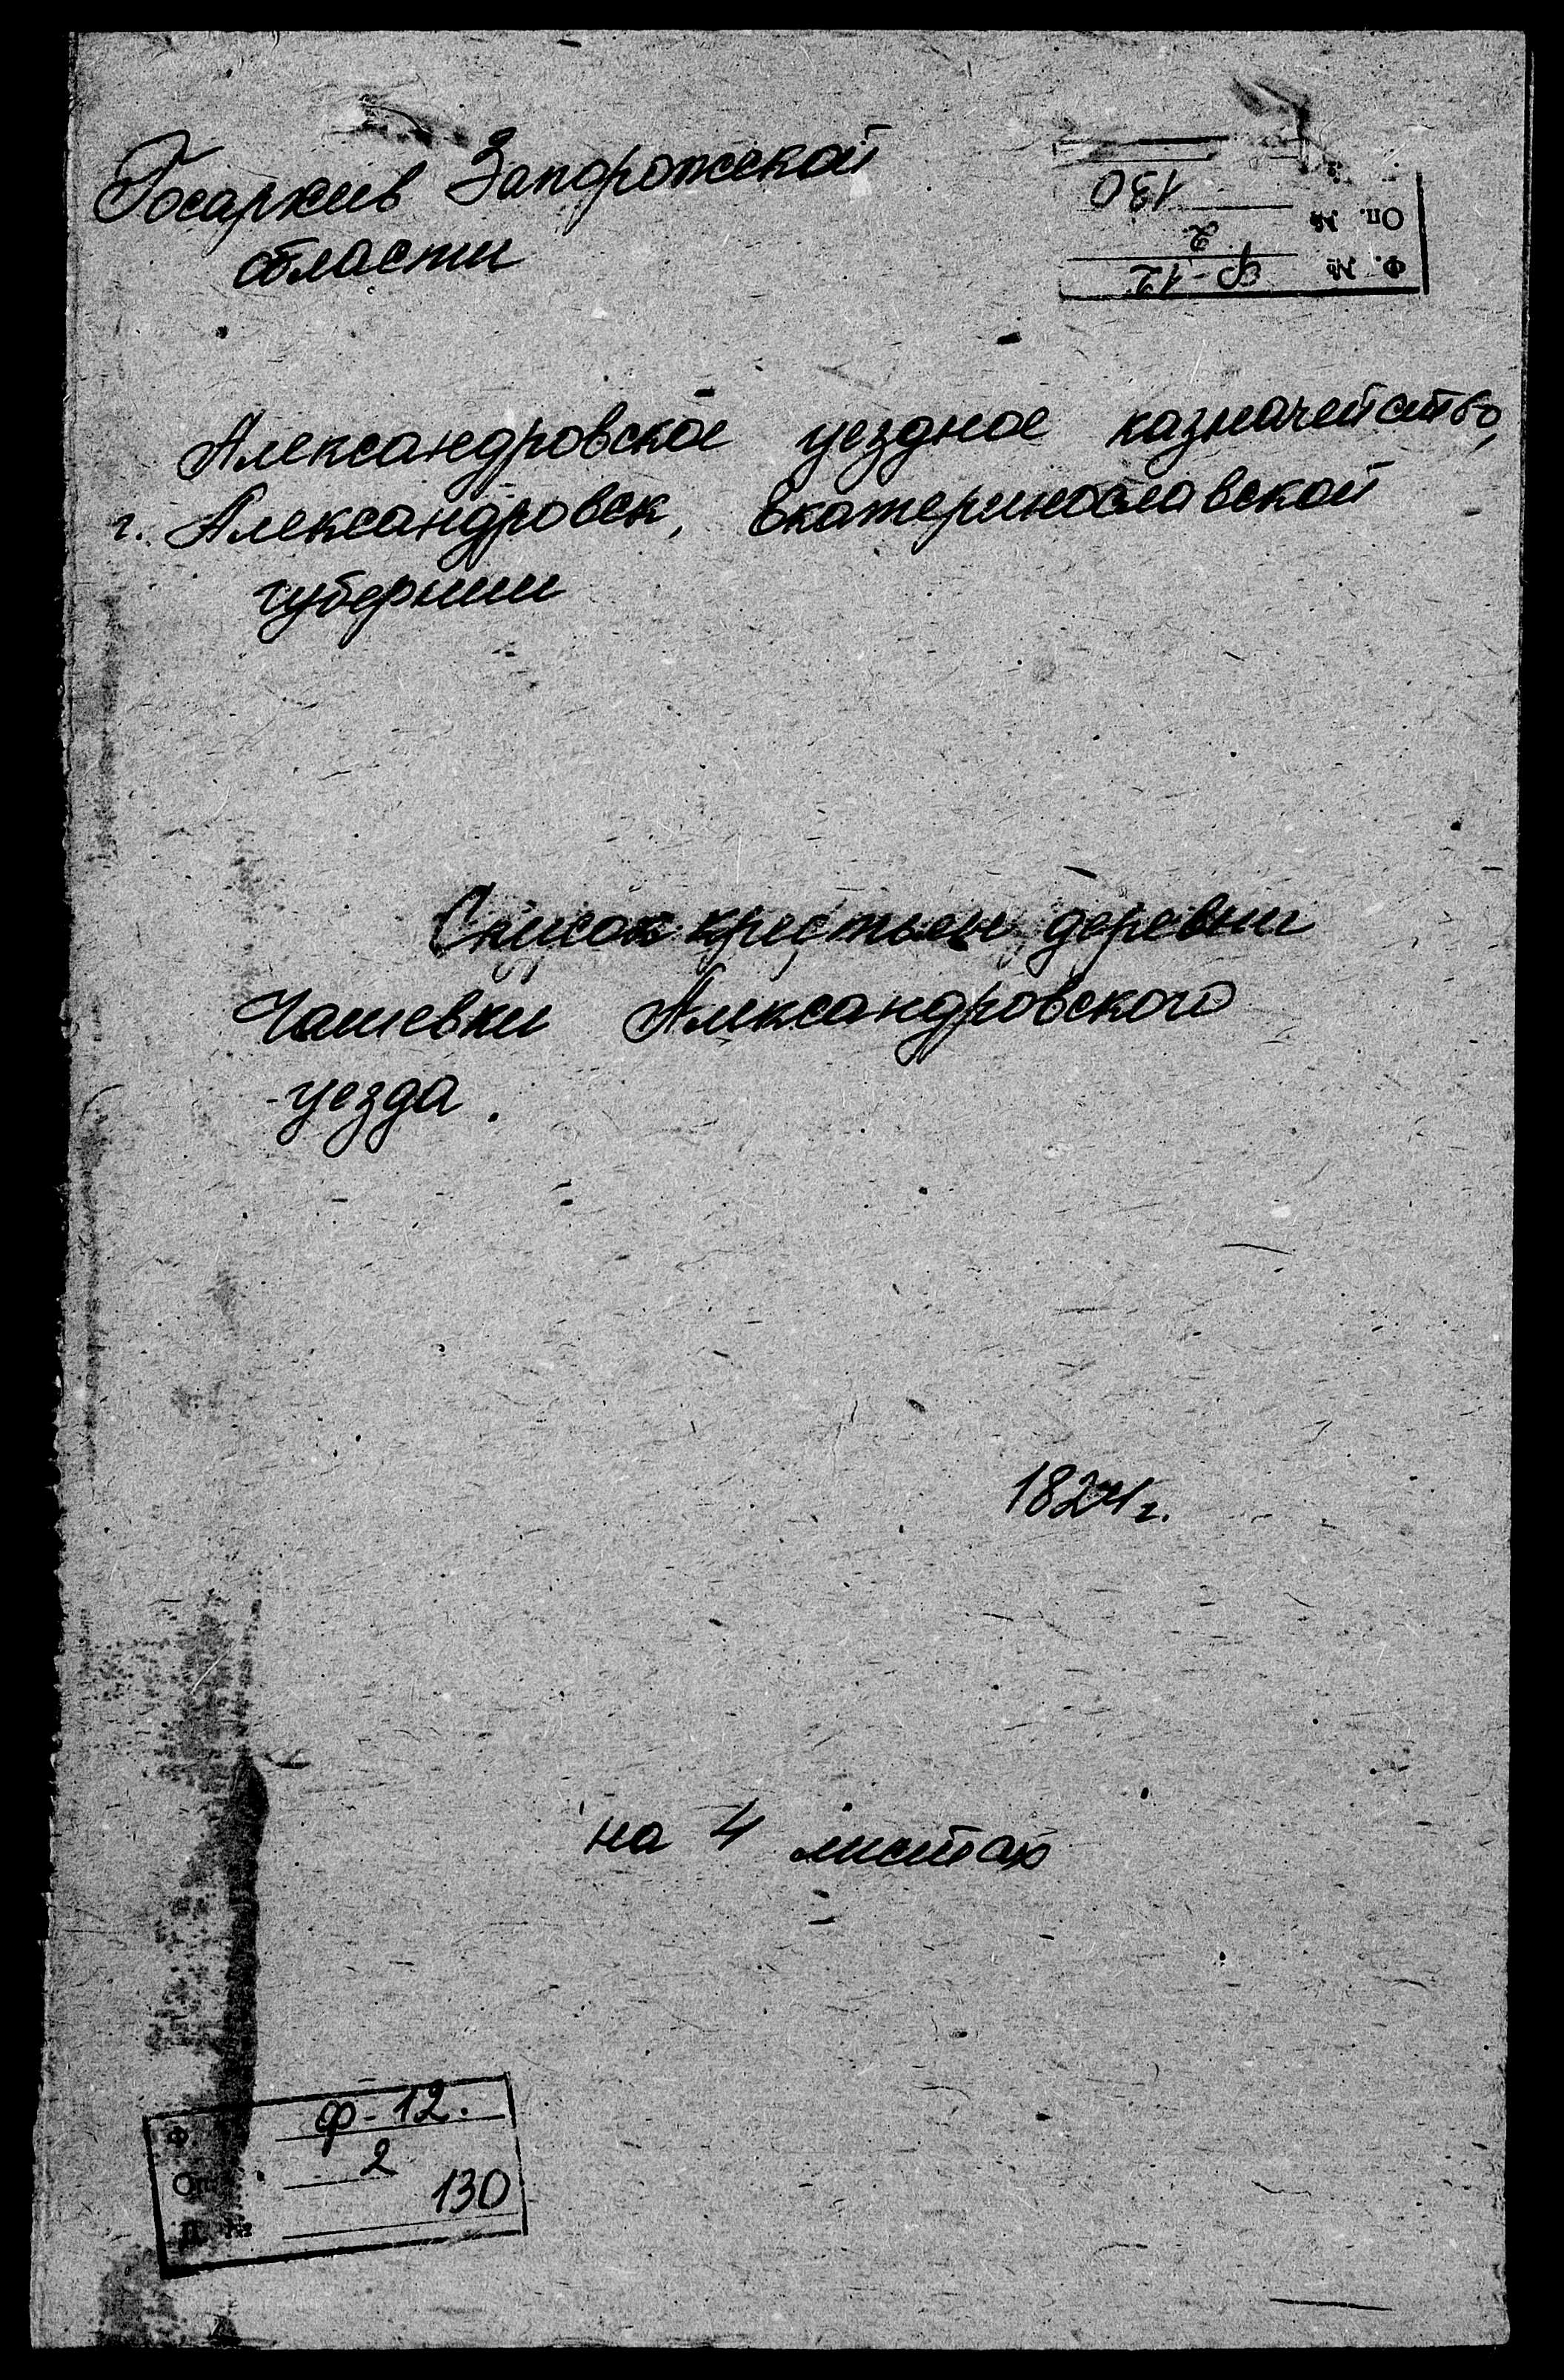 Госархив Запорожской
области
130
Оп. №
2
Ф. № ф-12
Александровское уездное казначейство,
г. Александровск, Екатеринославской
губернии
Список крестьян деревни
Чашевки Александровского
уезда.
1824 г.
на 4 листах
Ф. ф-12.
Оп. 2
Д. № 130